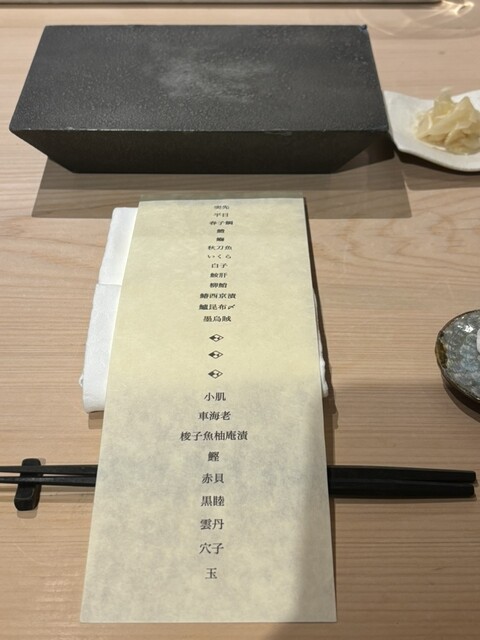 突先
平目
春子鯛
秋刀魚
いくら
白子
鮟肝
柳鮹
鰆西京漬
鱸昆布〆
墨烏賊
小肌
車海老
梭子魚柚庵漬
鰹
赤貝
黒睦
雲丹
穴子
玉